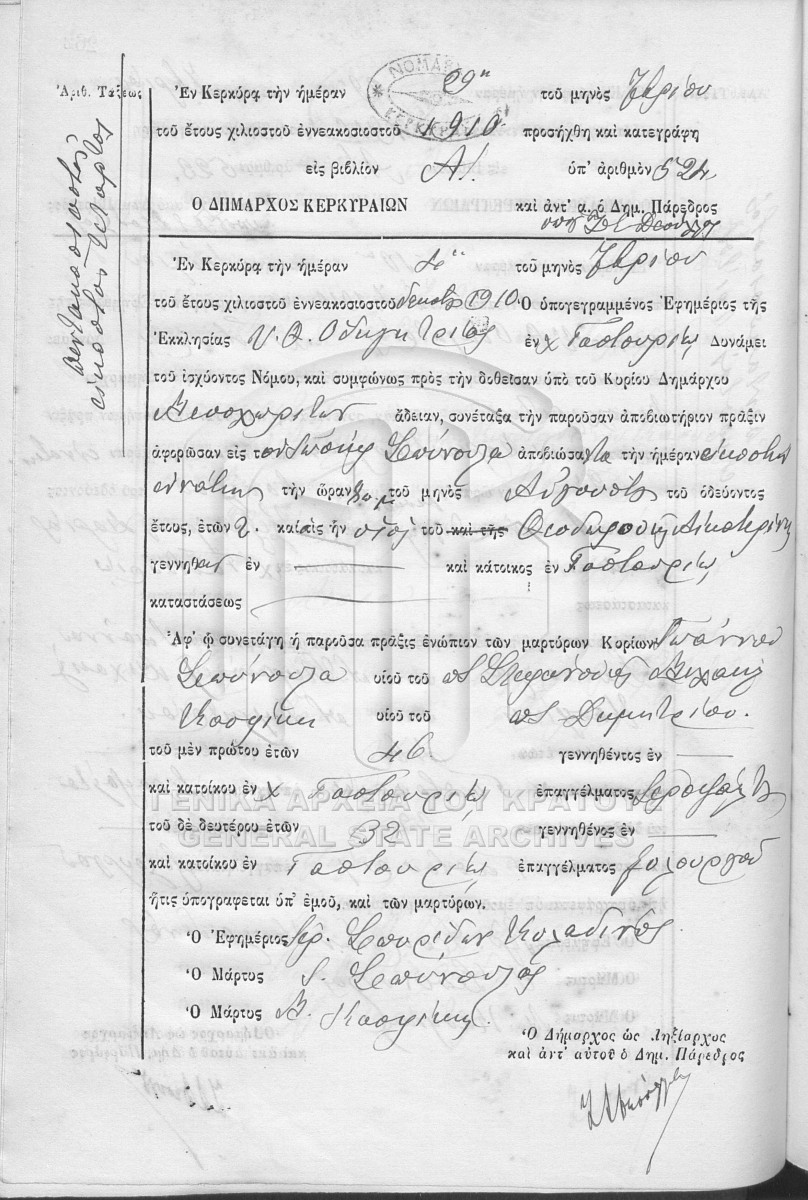 Ἀριθ. Τάξεως
πεντακοσιοστὸς
εἰκοστὸς τέταρτος
ΝΟΜΑΡΧ
ΚΕΡΚΥΡΑΣ
Ἐν Κερκύρᾳ τὴν ἡμέραν 29η τοῦ μηνὸς 7βρίου
τοῦ ἔτους χιλιοστοῦ ἐννεακοσιοστοῦ 1910 προσήχθη καὶ κατεγράφη
εἰς βιβλίον Α/. ὑπ' ἀριθμὸν 524
Ο ΔΗΜΑΡΧΟΣ ΚΕΡΚΥΡΑΙΩΝ καὶ ἀντ' α. ὁ Δημ. Πάρεδρος
Ἐν Κερκύρᾳ τὴν ἡμέραν τοῦ μηνὸς 7βρίου
τοῦ ἔτους χιλιοστοῦ ἐννεακοσιοστοῦ δεκάτου 1910 Ὁ ὑπογεγραμμένος Ἐφημέριος τῆς
Ἐκκλησίας Υ. Θ. Ὁδηγητρίας ἐν χ Γαστουρίῳ Δυνάμει
τοῦ ἰσχύοντος Νόμου, καὶ συμφώνως πρὸς τὴν δοθεῖσαν ὑπὸ τοῦ Κυρίου Δημάρχου
ἄδειαν, συνέταξα τὴν παροῦσαν ἀποβιωτήριον πρᾶξιν
ἀφορῶσαν εἰς τὸν Ἰωσὴφ Σπίνουλα ἀποβιώσαντα τὴν ἡμέραν εἰκοστὴν
ἐννάτην τὴν ὥραν μ.μ τοῦ μηνὸς Αὐγούστου τοῦ ὁδεύοντος
ἔτους, ἐτῶν 2. καὶ εἰς ἣν υἱὸς τοῦ καὶ τῆς Θεοδώρου κ Αἰκατερίνης
γεννηθὲν ἐν καὶ κάτοικος ἐν Γαστουρίῳ
καταστάσεως
Ἀφ' ᾧ συνετάγη ἡ παροῦσα πρᾶξις ἐνώπιον τῶν μαρτύρων Κορίων Ἰωάννου
Σπίνουλα υἱοῦ τοῦ πΣ Στεφάνου κ Μιχαὴλ
υἱοῦ τοῦ πΣ Δημητρίου.
τοῦ μὲν πρώτου ἐτῶν 46 γεννηθέντος ἐν
καὶ κατοίκου ἐν χ Γαστουρίῳ ἐπαγγέλματος Ἱεροψάλτου
τοῦ δὲ δευτέρου ἐτῶν 32 γεννηθένος ἐν
καὶ κατοίκου ἐν Γαστουρίῳ ἐπαγγέλματος ξυλουργοῦ
ἥτις ὑπογραφεται ὑπ' ἐμοῦ, καὶ τῶν μαρτύρων.
Ὁ Ἐφημέριος Ἱερ. Σπυρίδων
Ὁ Μάρτυς Ι. Σπίνουλας
Ὁ Μάρτυς Μ.
Ὁ Δήμαρχος ὡς Ληξίαρχος
καὶ ἀντ' αὐτοῦ ὁ Δημ. Πάρεδρος
ΓΕΝΙΚΑ ΑΡΧΕΙΑ ΤΟΥ ΚΡΑΤΟΥΣ
GENERAL STATE ARCHIVES